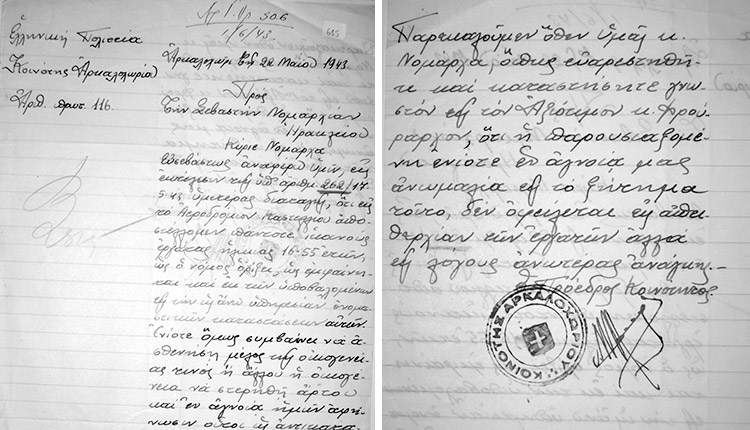 Αρ. Πρ. 306
1/6/43
615
Ἑλληνική Πολιτεία
Κοινότης Ἀρκαλοχωρίου
Ἀριθ. πρωτ. 116.
Ἀρκαλοχώρι τῇ 22 Μαΐου 1943
Πρός
Τήν Σεβαστήν Νομαρχίαν
Ἡρακλείου
Κύριε Νομάρχα
Εὐσεβάστως ἀναφέρω ὑμῖν, εἰς
ἐκτέλεσιν τῆς ὑπ' ἀριθμ. 262/17
5-43 ὑμετέρας διαταγῆς, ὅτι εἰς
τό Ἀεροδρόμιον Καστελλίου ἀπο-
στέλλομεν πάντοτε ἱκανούς
ἐργάτας ἡλικίας 16-55 ἐτῶν,
ὡς ὁ νόμος ὁρίζει, ὡς ἐμφαίνε-
ται καί ἐκ τῶν ὑποβαλλομένων
εἰς τήν ὡς ἄνω ὑπηρεσίαν ὀνομα-
στικῶν καταστάσεων αὐτῶν.
Ἐνίοτε ὅμως συμβαίνει νά ἀ-
σθενήσῃ μέλος τῆς οἰκογενεί-
ας τινός ἤ ἄλλου ἤ οἰκογέ-
νεια νά στερηθῇ ἄρτου
καί ἐν ἀγνοίᾳ ἡμῶν
οὗτοι
Παρακαλοῦμεν ὅθεν ὑμᾶς κ.
Νομάρχα, ὅπως εὐαρεστηθῆ-
τε καί καταστήσητε γνω-
στόν εἰς τόν Ἀξιότιμον κ. Φρού-
ραρχον, ὅτι ἡ παρουσιαζομέ-
νη ἐνίοτε ἐν ἀγνοίᾳ μας
ἀνωμαλία εἰς τό ζήτημα
τοῦτο, δέν ὀφείλεται εἰς ἀπει-
θαρχίαν τῶν ἐργατῶν ἀλλά
εἰς λόγους ἀνωτέρας ἀνάγκης.-
Ὁ Πρόεδρος Κοινότητος
ΚΟΙΝΟΤΗΣ ΑΡΚΑΛΟΧΩΡΙΟΥ